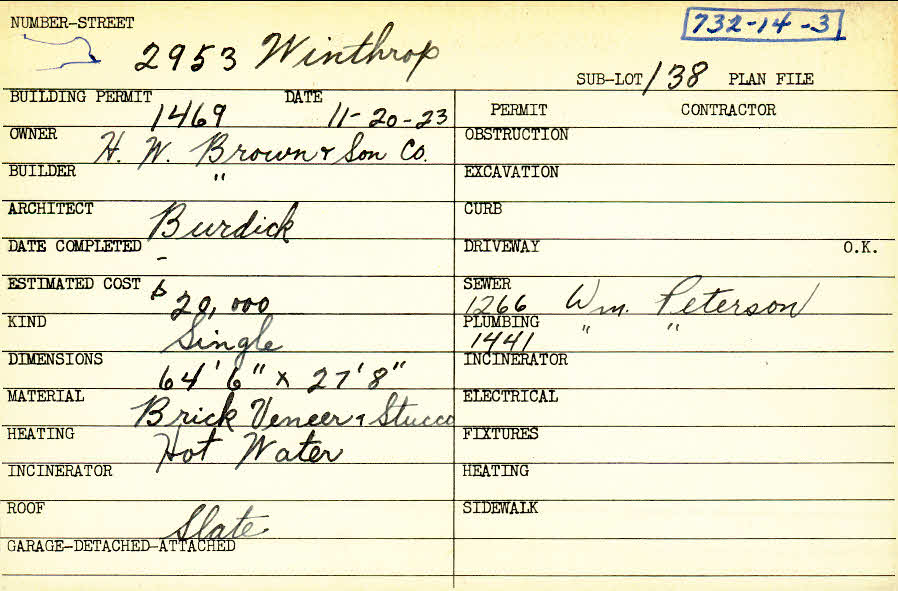 NUMBER-STREET
732-14-3
2953 Winthrop
SUB-LOT 138 PLAN FILE
BUILDING PERMIT 1469 DATE 11-20-23
PERMIT CONTRACTOR
OWNER H. W. Brown & Son Co.
OBSTRUCTION
BUILDER "
EXCAVATION
ARCHITECT Burdick
CURB
DATE COMPLETED -
DRIVEWAY O.K.
ESTIMATED COST $20,000
SEWER 1266 Wm. Peterson
KIND Single
PLUMBING 1441 " "
DIMENSIONS 64' 6" x 27' 8"
INCINERATOR
MATERIAL Brick Veneer & Stucco
ELECTRICAL
HEATING Hot Water
FIXTURES
INCINERATOR
HEATING
ROOF Slate
SIDEWALK
GARAGE-DETACHED-ATTACHED